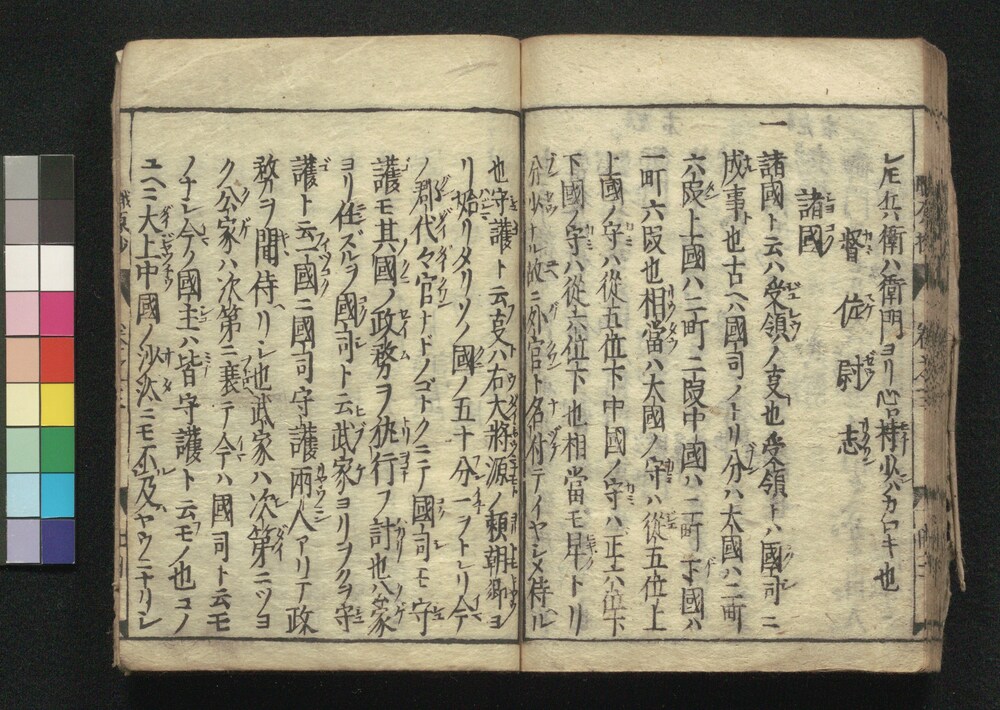 レ𪜈兵衛ハ衛門ヨリ心持少ハカロキ也
督佐尉志
諸國
一諸國ト云ハ受領ノ㕝也受領トハ國司ニ
成事也古ヘハ國司ノトリ分ハ大國ハ二町
六段上國ハ二町二段中國ハ二町下國ハ
一町六段也相當ハ大國ノ守ハ從五位上
上國ノ守ハ從五位下中國ノ守ハ正六位下
下國ノ守ハ從六位下也相當モ早トリ
分少ナル故ニ外官ト名付テイヤシメ侍ル
也守護ト云㕝ハ右大將源ノ頼朝卿ヨ
リ始リタリソノ國ノ五十分一ヲトレリ今
ノ郡代々官ナドノゴトクニテ國司モ守
護モ其國ノ政務ヲ執行フ計也公家
ヨリ任ズルヲ國司ト云武家ヨリヲクヲ守
護ト云一國ニ國司守護兩人アリテ政
務ヲ聞侍ヘリシ也武家ハ次第ニツヨ
ク公家ハ次第ニ衰テ今ハ國司ト云モ
ノナシ今ノ國主ハ皆守護ト云モノ也コノ
ユヘニ大上中國ノ沙汰ニモ不及ヤウニナリシ